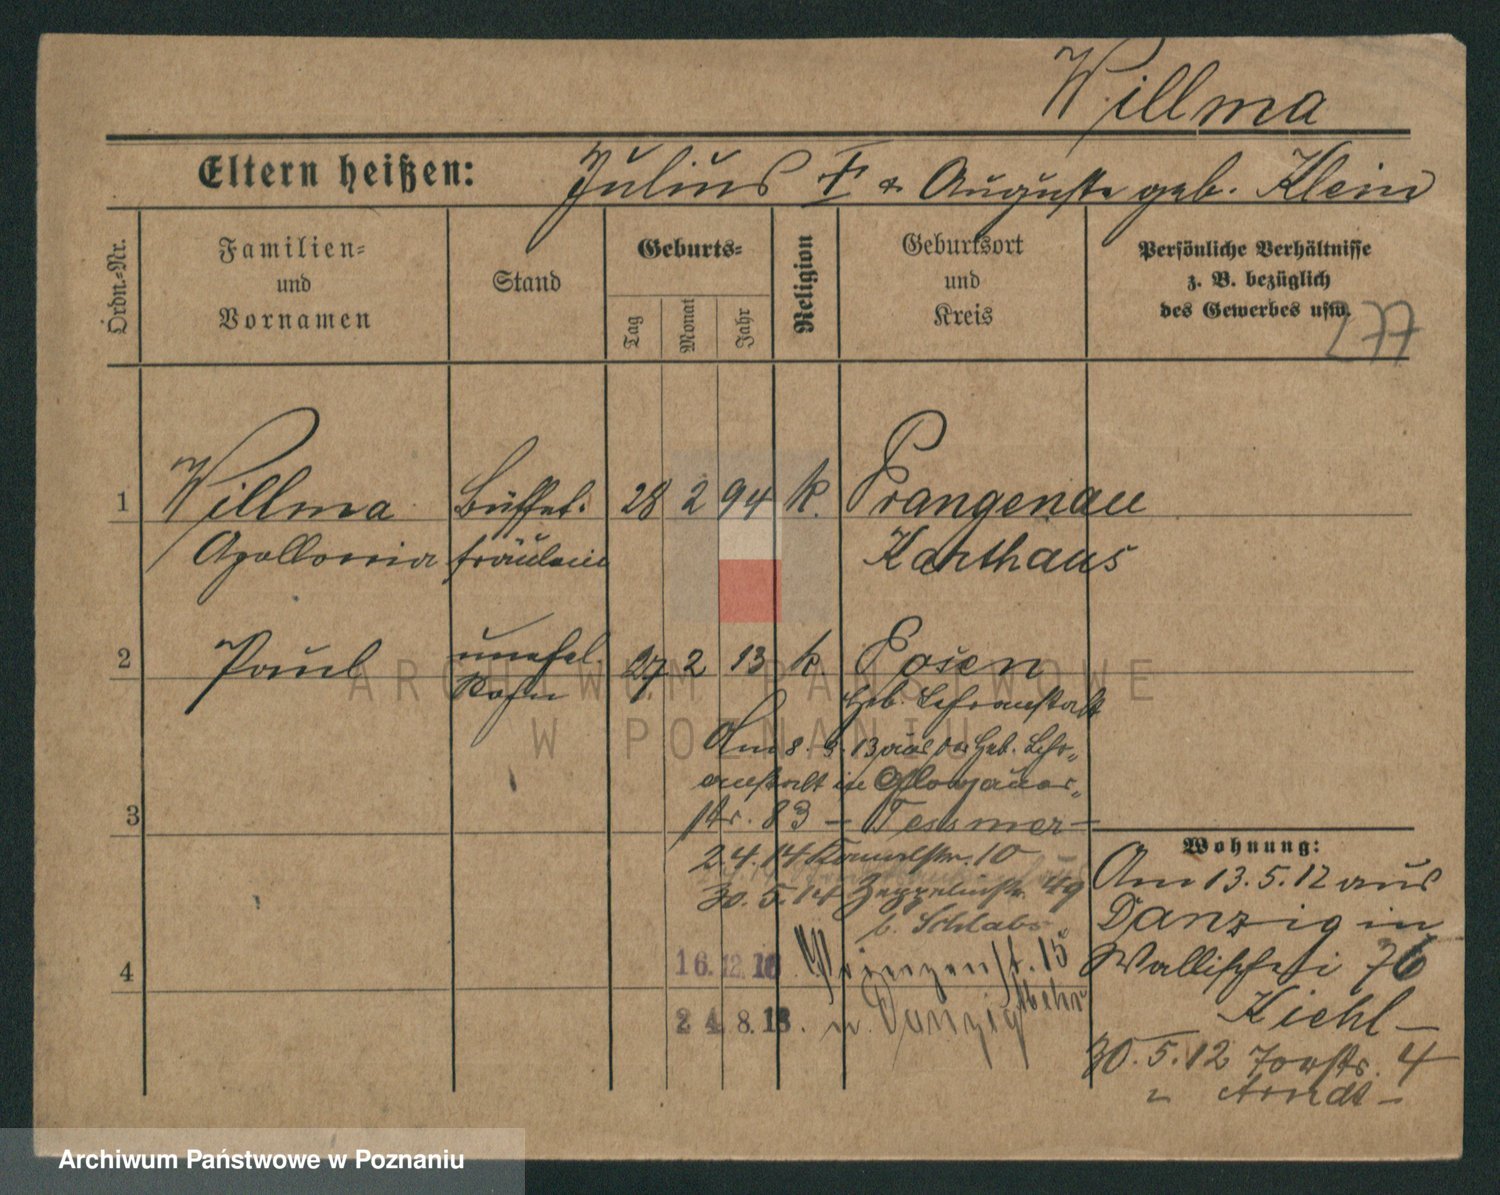 Willma
Eltern heißen: Julius † & Auguste geb. Klein
Ordn.-Nr.
Familien-
und
Vornamen
Stand
Geburts-
Tag
Monat
Jahr
Religion
Geburtsort
und
Kreis
Persönliche Verhältnisse
z. B. bezüglich
des Gewerbes usw.
277
1 Willma Büffet- 28 2 94 k. Prangenau
Apollonia fräulein Karthaus
2 Paul unehel. 27 2 13 k Posen
Sohn Heb. Lehranstalt
Am 8. 3. 13 aus der Heb. Lehr-
anstalt in Glogauer-
str. 83 – Tessmer –
3
2.4.14 Kanalstr. 10
30.5.14 Zeppelinstr. 49
b. Schlabs
4
16.12.16 Prinzenst. 15
24.8.18. n. Danzig
Wohnung:
Am 13.5.12 aus
Danzig in
Wallischei 76
Kiehl –
30.5.12 Torstr. 4
– Arndt –
ARCHIWUM PAŃSTWOWE
W POZNANIU
Archiwum Państwowe w Poznaniu